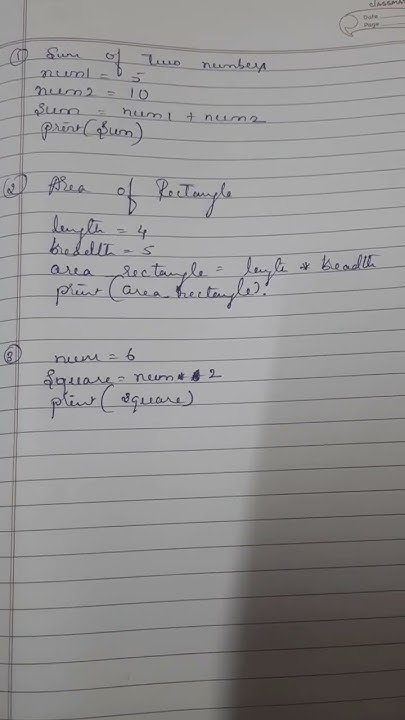 classmate
Date
Page
① Sum of Two numbers
num1 = 5
num2 = 10
Sum = num1 + num2
print(Sum)
② Area of Rectangle
length = 4
breadth = 5
area_rectangle = length * breadth
print (area_rectangle).
③ num = 6
Square = num**2
print( square)